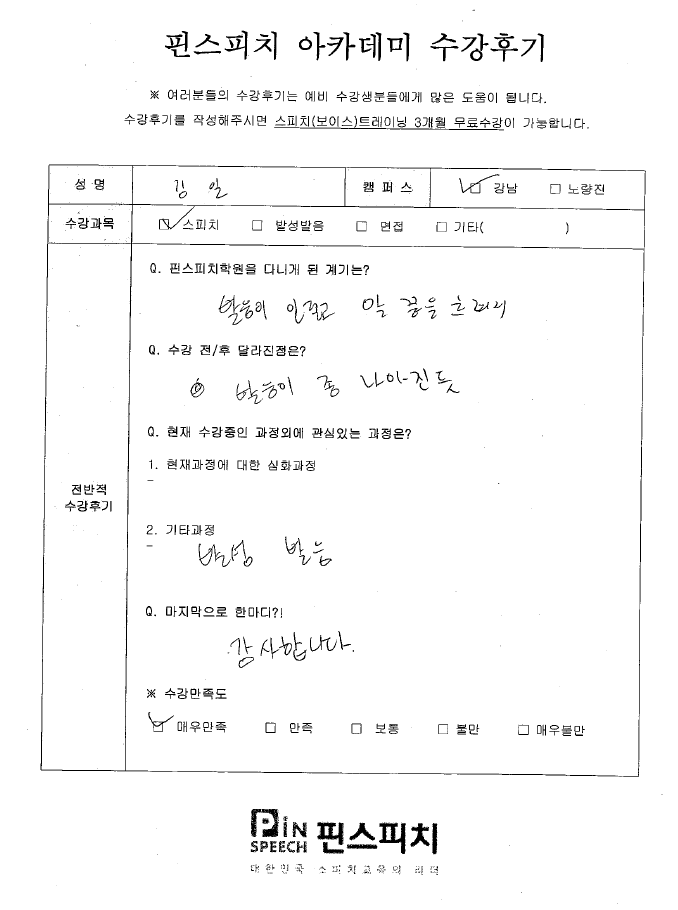 핀스피치 아카데미 수강후기
※ 여러분들의 수강후기는 예비 수강생분들에게 많은 도움이 됩니다.
수강후기를 작성해주시면 스피치(보이스)트레이닝 3개월 무료수강이 가능합니다.
성 명 김 일 캠 퍼 스 ☑ 강남 □ 노량진
수강과목 ☑ 스피치 □ 발성발음 □ 면접 □ 기타( )
전반적 수강후기
Q. 핀스피치학원을 다니게 된 계기는?
발음이 안좋고 말 끝을 흐려서
Q. 수강 전/후 달라진점은?
발음이 좀 나아진듯
Q. 현재 수강중인 과정외에 관심있는 과정은?
1. 현재과정에 대한 심화과정
-
2. 기타과정
-
발성 발음
Q. 마지막으로 한마디?!
감사합니다.
※ 수강만족도
☑ 매우만족 □ 만족 □ 보통 □ 불만 □ 매우불만
PiN SPEECH 핀스피치
대한민국 스피치교육의 리더